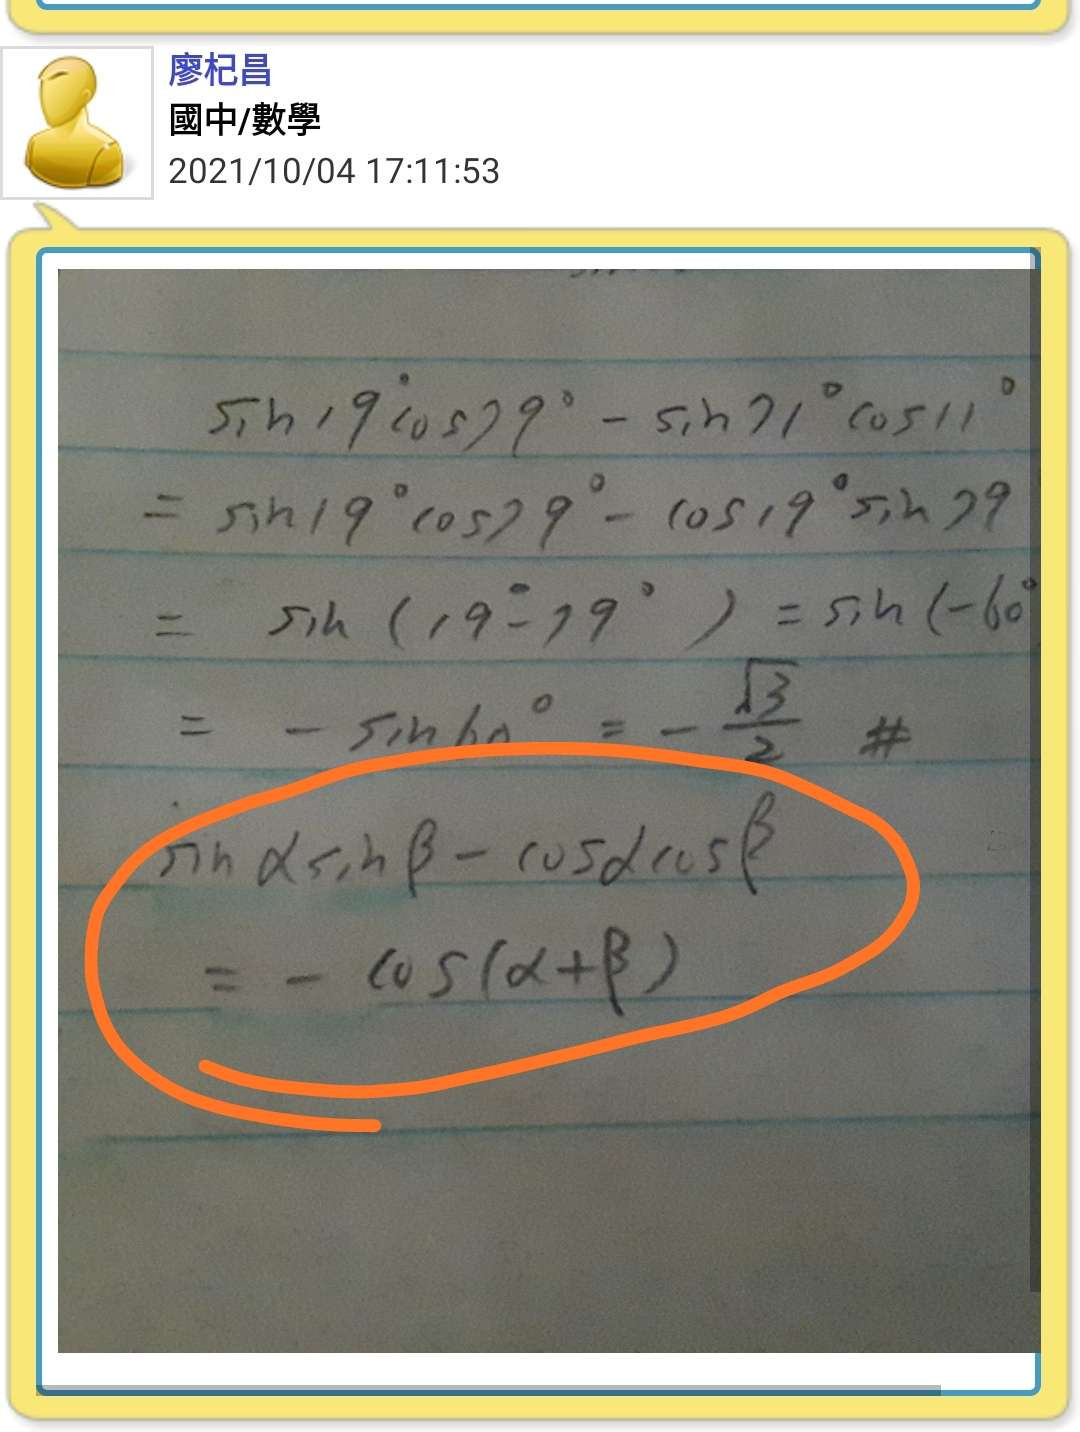 廖杞昌
國中/數學
2021/10/04 17:11:53
sin19°cos79° - sin71°cos11°
= sin19°cos79° - cos19°sin79
= sin (19°-79°) = sin (-60°
= - sin60° = - √3/2 #
sinαsinβ - cosαcosβ
= - cos(α+β)